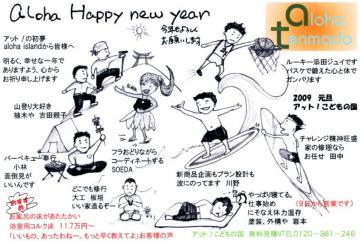 aLoha Happy new year
今年もよろしく
お願いします。
aloha
tenmado
アット！の初夢
aloha islandから皆様へ
明るく、幸せな一年で
ありますよう、心から
お祈り申し上げます
ルーキー添田ジュイです
バスケで鍛えた心と体で
ガンバリます
山登り大好き
植木や 吉田親子
2009 元旦
アット！こどもの国
バーベキュー奉行
小林
面倒見が
いいんです
フラおどりながら
コーディネートする
SOEDA
チャレンジ精神旺盛
家の修理なら
お任せ 田中
どこでも修行
大工 板垣
いい家造るぞー
新商品企画もプラン設計も
波にのってます 川野
やっぱり寝てる、
仕事始め
にそなえ体力温存
塗装、外構や 喜本
(9日から営業です)
お風呂の床があたたかい
浴室用コルク床 11.7万円～
「いいもの、あったわねー、もっと早く教えてよ」お客様の声
アット！こどもの国 無料見積りTEL0120-381-246